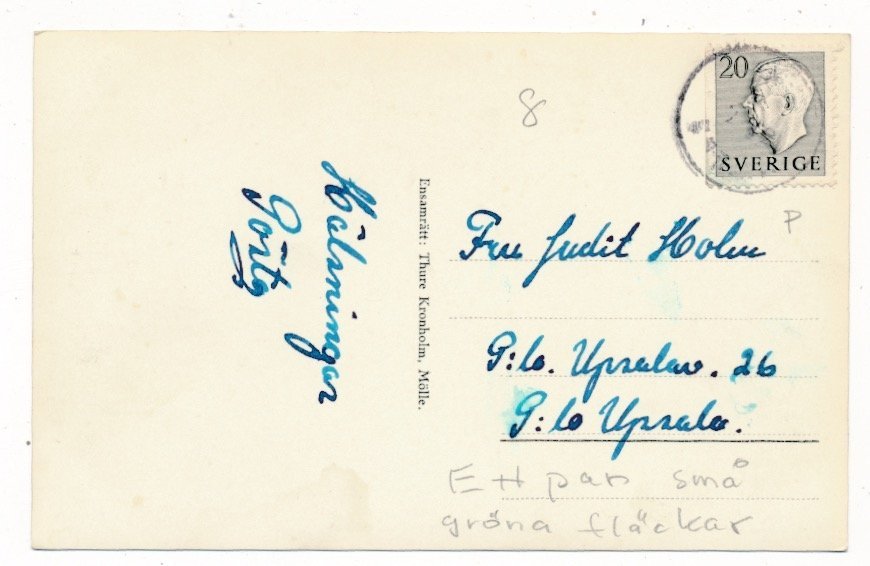 Hälsningar
Gösta
Ensamrätt: Thure Kronholm, Mölle.
8
20
SVERIGE
P
Fru Judit Holm
G:la. Upsalav. 26
G:la Upsala.
Ett par små
gröna fläckar